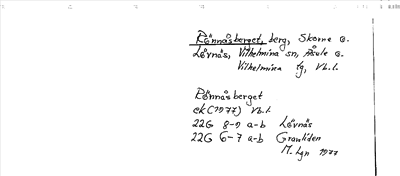 Rönnåsberget, berg, Skorne o.
Lövnäs, Vilhelmina sn, Åsele o.
Vilhelmina tg, Vb.l.
Rönnåsberget
ek (1977) Vb.l
22G 8-9 a-b Lövnäs
22G 6-7 a-b Granliden
M. Lgn 1977